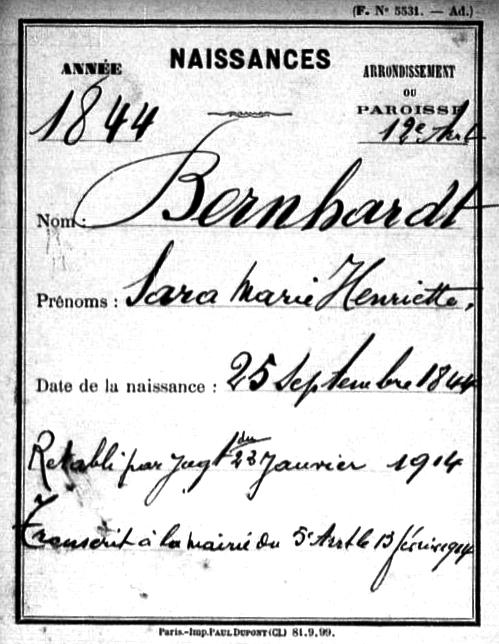 (F. N° 5531. — Ad.)
NAISSANCES
ANNÉE
1844
ARRONDISSEMENT
OU
PAROISSE
12e Arrt
Nom : Bernhardt
Prénoms : Sara Marie Henriette.
Date de la naissance : 25 Septembre 1844
Rétabli par Jugt du 23 Janvier 1914
Transcrit à la mairie du 5e Arrt le 13 février 1914
Paris.-Imp. PAUL DUPONT (Cl.) 81.9.99.